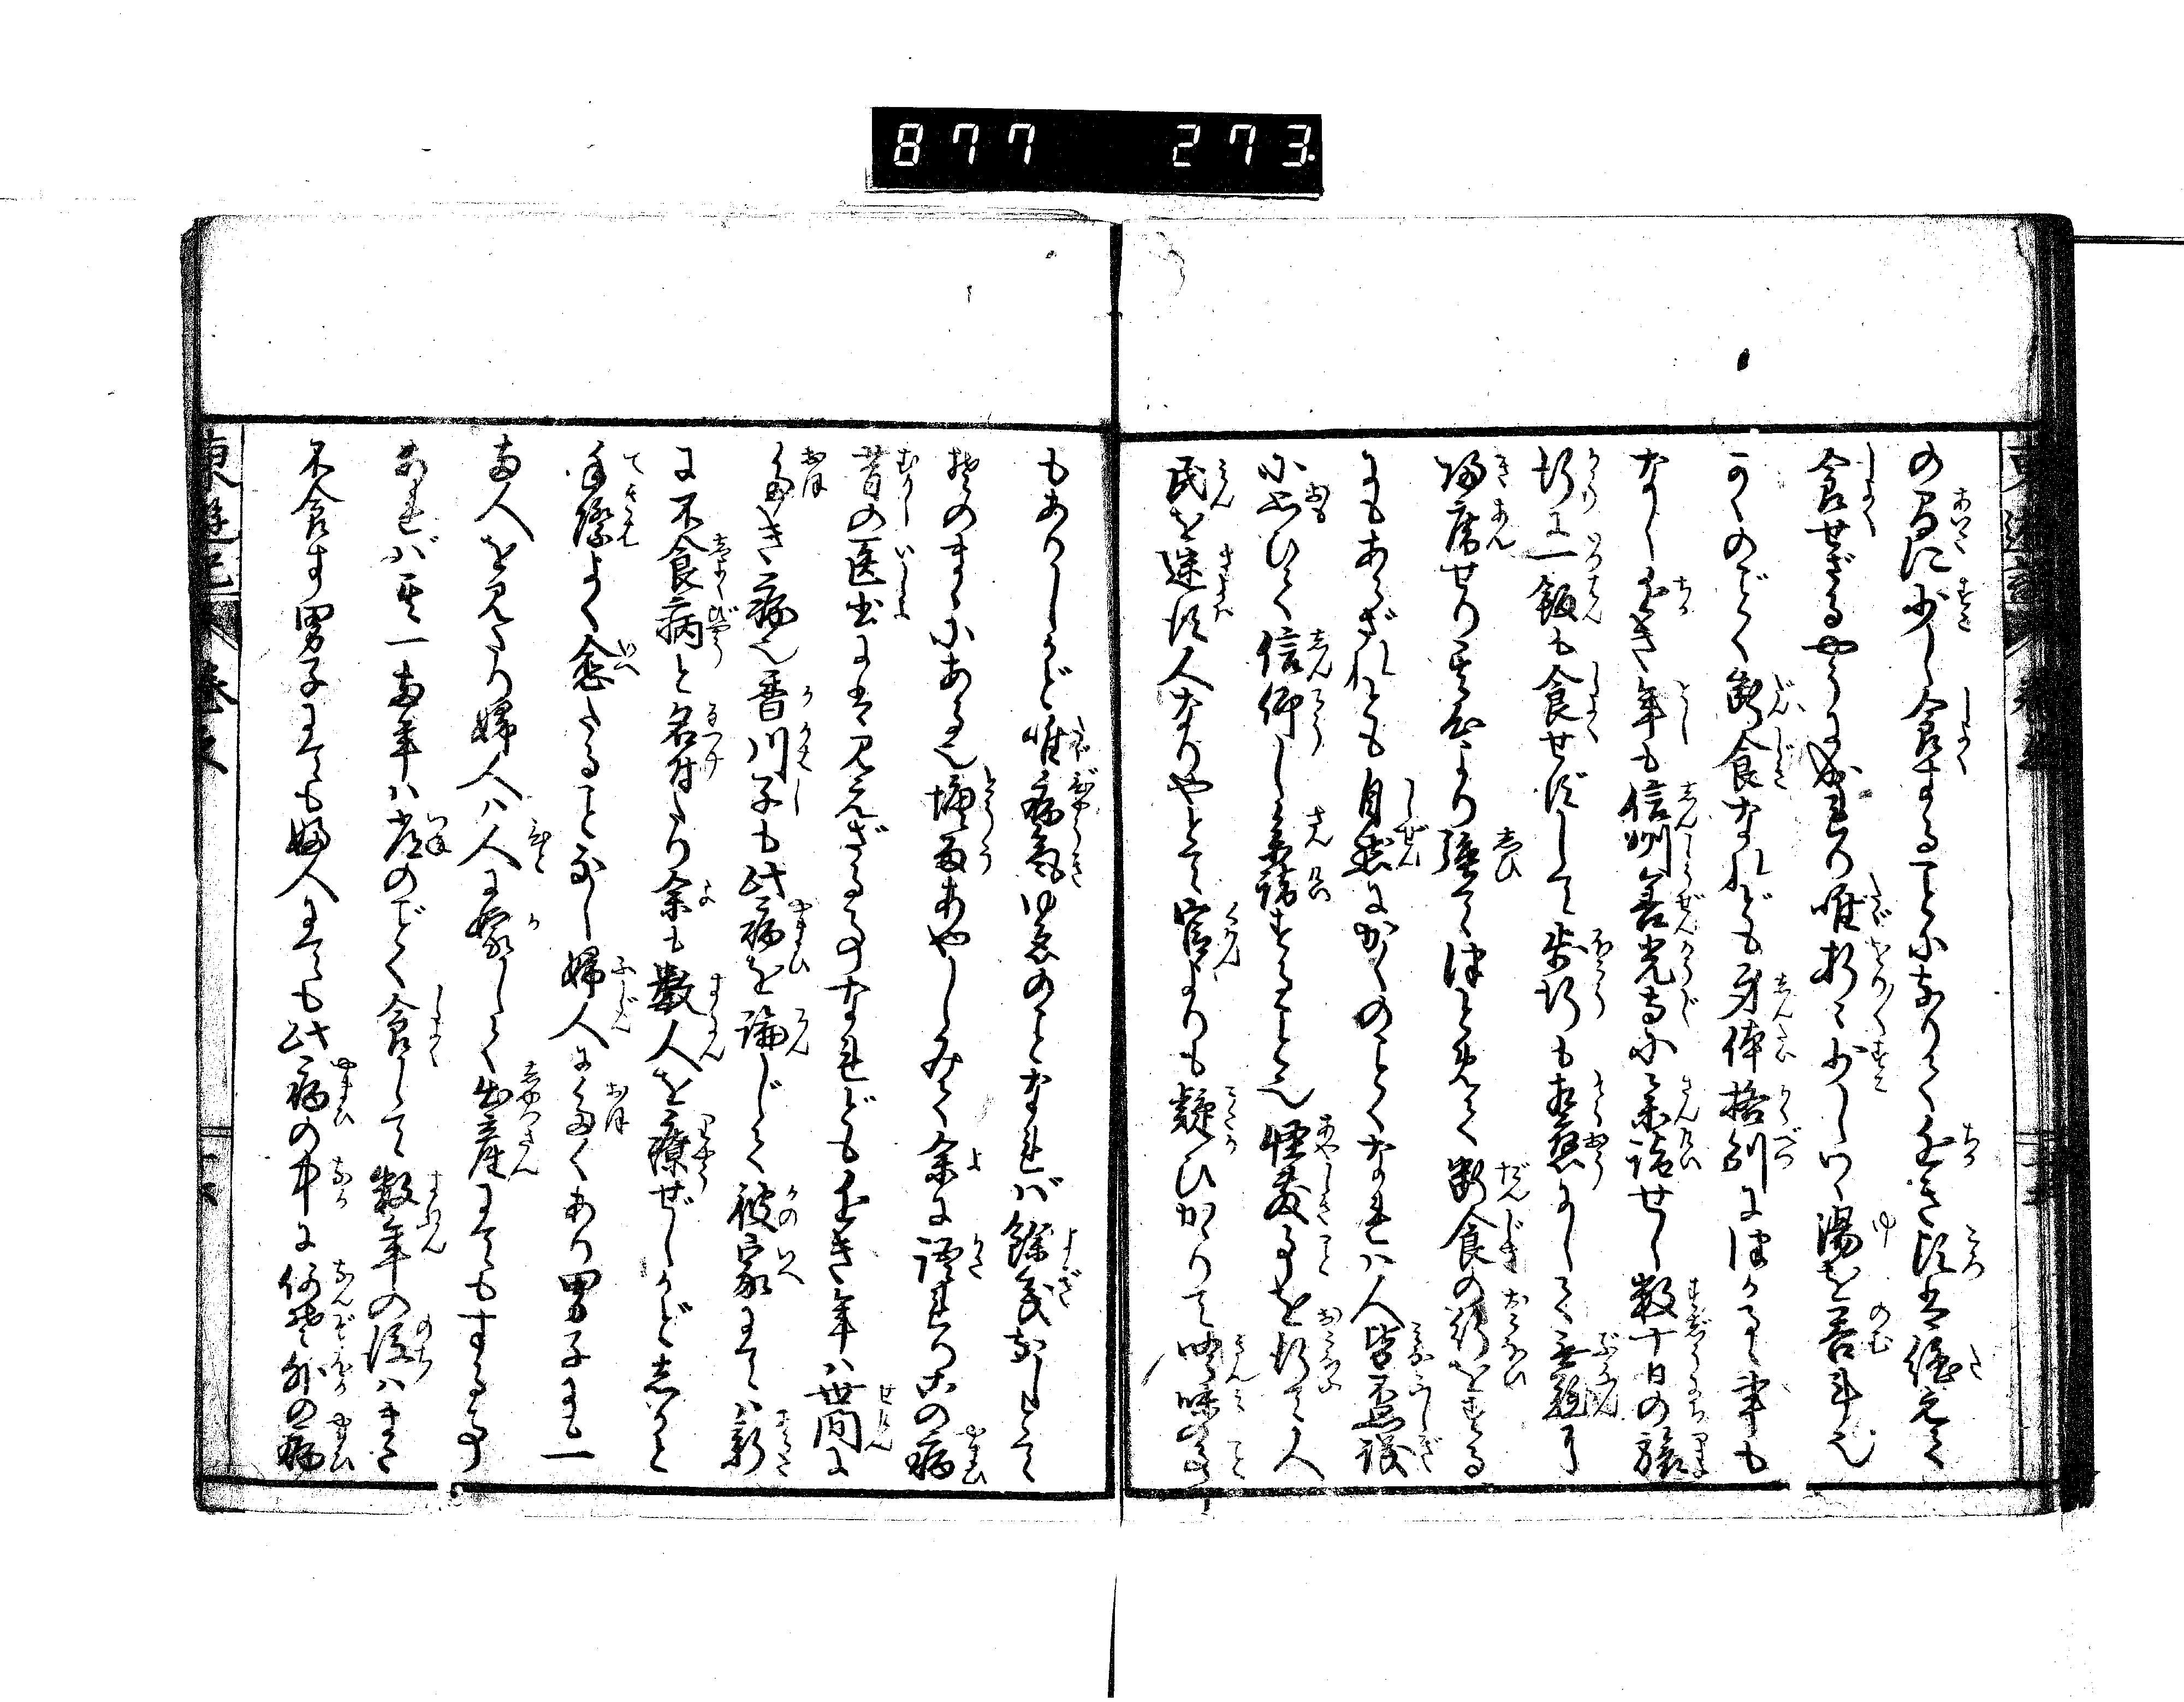 877 273
の間に少し食することになりて近き頃は絶えて
食せざるやうに成れり唯折々少しづゝ湯を呑斗也
かくのごとく断食なれども身体格別につかるゝ事も
なし近き年も信州善光寺に参詣せし数十日の旅
行に一飯も食せずして歩行も相応にして無難に
帰庵せり其家より強て
にもあらざれとも自然にかくのごとくなれハ人皆不思議
に思ひて信仰し参詣することと也怪敷事を行て人
民を迷はす人なりやとて官よりも疑ひかゝりて吟味等の事
もありしかど唯病気ゆゑのことなれば余義なしとて
其のまゝにある也塘雨あやしみて余に語れりこの病
昔の医書には見えざる事なれども近き年ハ世間に
多き病也香川子も此病を論じて彼家にてハ新
に不食病と名付たり余も数人を療ぜしかどしかと
手際よく愈たることなし婦人に多くあり男子にも一
両人を見たり婦人ハ人に嫁して出産にてもする事
あれば其一両年ハ常のごとく食して数年の後ハまた
不食す男子にても婦人にても此病の中に何ぞ外の病
東遊記 巻之